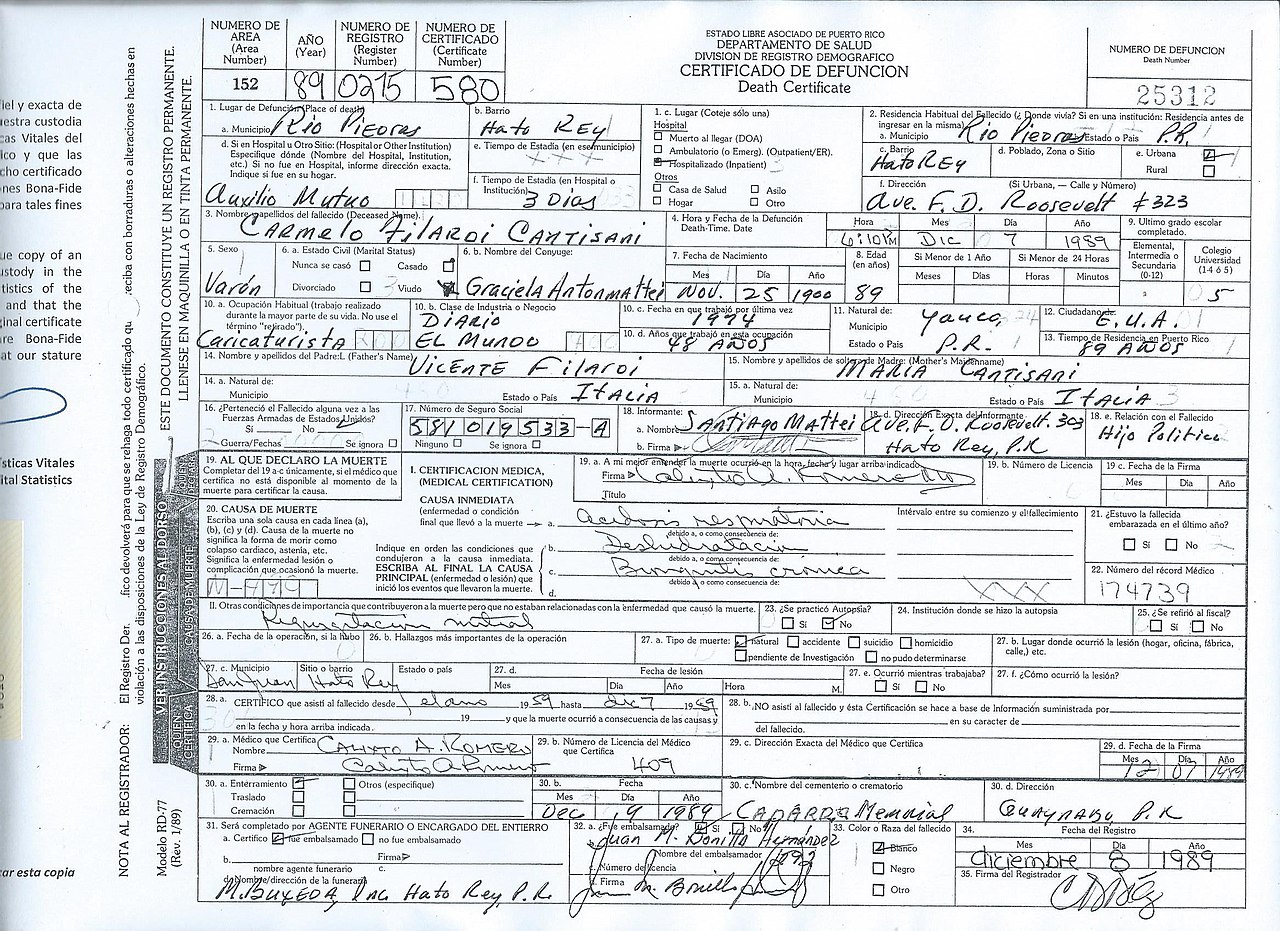 NUMERO DE AREA (Area Number)
152
AÑO (Year)
89
NUMERO DE REGISTRO (Register Number)
0215
NUMERO DE CERTIFICADO (Certificate Number)
580
ESTADO LIBRE ASOCIADO DE PUERTO RICO
DEPARTAMENTO DE SALUD
DIVISION DE REGISTRO DEMOGRAFICO
CERTIFICADO DE DEFUNCION
Death Certificate
NUMERO DE DEFUNCION
Death Number
25312
1. Lugar de Defunción (Place of death)
a. Municipio Rio Piedras
b. Barrio
Hato Rey
1. c. Lugar (Coteje sólo una)
Hospital
Muerto al llegar (DOA)
Ambulatorio (o Emerg). (Outpatient/ER).
Hospitalizado (Inpatient)
Otros
Casa de Salud Asilo
Hogar Otro
2. Residencia Habitual del Fallecido (¿ Donde vivía? Si en una institución: Residencia antes de
ingresar en la misma)
a. Municipio Rio Piedras Estado o País P.R.
c. Barrio
Hato Rey
d. Poblado, Zona o Sitio
e. Urbana
Rural
f. Dirección (Si Urbana, — Calle y Número)
Ave. F. D. Roosevelt #323
d. Si en Hospital u Otro Sitio: (Hospital or Other Institution)
Especifique dónde (Nombre del Hospital, Institución,
etc.) Si no fue en Hospital, informe dirección exacta.
Indique si fue en su hogar.
Auxilio Mutuo
e. Tiempo de Estadía (en ese municipio)
XXX
f. Tiempo de Estadía (en Hospital o
Institución)
3 Dias
3. Nombre y apellidos del fallecido (Deceased Name)
Carmelo Filardi Cantisani
4. Hora y Fecha de la Defunción
Death-Time. Date
Hora Mes Día Año
6:10 PM Dic 7 1989
9. Ultimo grado escolar
completado.
Elemental, Intermedia o Secundaria (0-12)
Colegio Universidad (1-4 ó 5)
5
5. Sexo
Varón
6. a. Estado Civil (Marital Status)
Nunca se casó Casado
Divorciado Viudo
6. b. Nombre del Conyuge:
Graciela Antonmattei
7. Fecha de Nacimiento
Mes Día Año
Nov. 25 1900
8. Edad (en años)
89
Si Menor de 1 Año
Meses Días
Si Menor de 24 Horas
Horas Minutos
10. a. Ocupación Habitual (trabajo realizado
durante la mayor parte de su vida. No use el
término "retirado").
Caricaturista
10. b. Clase de Industria o Negocio
Diario
El Mundo
10. c. Fecha en que trabajó por última vez
1974
10. d. Años que trabajó en esta ocupación
48 años
11. Natural de:
Municipio Yauco,
Estado o País P.R.
12. Ciudadano de:
E.U.A.
13. Tiempo de Residencia en Puerto Rico
89 años
14. Nombre y apellidos del Padre: (Father's Name)
Vicente Filardi
15. Nombre y apellidos de soltera de Madre: (Mother's Maiden name)
Maria Cantisani
14. a. Natural de:
Municipio Estado o País Italia
15. a. Natural de:
Municipio Estado o País Italia
16. ¿Perteneció el Fallecido alguna vez a las
Fuerzas Armadas de Estados Unidos?
Sí No
Guerra/Fechas Se ignora
17. Número de Seguro Social
581019533-A
Ninguno Se ignora
18. Informante:
a. Nombre Santiago Mattei
b. Firma
18. d. Dirección Exacta del Informante
Ave. F. D. Roosevelt. 303
Hato Rey, P.R
18. e. Relación con el Fallecido
Hijo Politico
19. AL QUE DECLARO LA MUERTE
Completar del 19 a-c únicamente, si el médico que
certifica no está disponible al momento de la
muerte para certificar la causa.
I. CERTIFICACION MEDICA,
(MEDICAL CERTIFICATION)
19. a. A mi mejor entender la muerte ocurrió en la hora, fecha y lugar arriba indicado
Firma Calixto A. Romero
Título
19. b. Número de Licencia
19 c. Fecha de la Firma
Mes Día Año
20. CAUSA DE MUERTE
Escriba una sola causa en cada línea (a),
(b), (c) y (d). Causa de la muerte no
significa la forma de morir como
colapso cardiaco, astenia, etc.
Significa la enfermedad lesión o
complicación que ocasionó la muerte.
CAUSA INMEDIATA
(enfermedad o condición
final que llevó a la muerte
Indique en orden las condiciones que
condujeron a la causa inmediata.
ESCRIBA AL FINAL LA CAUSA
PRINCIPAL (enfermedad o lesión) que
inició los eventos que llevaron la muerte.
Intérvalo entre su comienzo y el fallecimiento
a. Acidosis respiratoria
debido a, o como consecuencia de:
b. Deshidratacion
debido a, o como consecuencia de:
c. Bronquitis cronica
debido a, o como consecuencia de:
d.
XXX
21. ¿Estuvo la fallecida
embarazada en el último año?
Sí No
22. Número del récord Médico
174739
II. Otras condiciones de importancia que contribuyeron a la muerte pero que no estaban relacionadas con la enfermedad que causó la muerte.
Regurgitacion mitral
23. ¿Se practicó Autopsia?
Sí No
24. Institución donde se hizo la autopsia
25. ¿Se refirió al fiscal?
Sí No
26. a. Fecha de la operación, si la hubo
26. b. Hallazgos más importantes de la operación
27. a. Tipo de muerte: natural accidente suicidio homicidio
pendiente de Investigación no pudo determinarse
27. b. Lugar donde ocurrió la lesión (hogar, oficina, fábrica,
calle,) etc.
27. c. Municipio Sitio o barrio Estado o país
San Juan Hato Rey
27. d. Fecha de lesión
Mes Día Año Hora M.
27. e. Ocurrió mientras trabajaba?
Sí No
27. f. ¿Cómo ocurrió la lesión?
28. a. CERTIFICO que asistí al fallecido desde el ano 1959 hasta dic 7 1989
19 y que la muerte ocurrió a consecuencia de las causas y
en la fecha y hora arriba indicada.
28. b. NO asistí al fallecido y ésta Certificación se hace a base de Información suministrada por
en su caracter de
del fallecido.
29. a. Médico que Certifica
Nombre Calixto A. Romero
Firma Calixto A. Romero
29. b. Número de Licencia del Médico
que Certifica
409
29. c. Dirección Exacta del Médico que Certifica
29. d. Fecha de la Firma
Mes Día Año
12 07 1989
30. a. Enterramiento Otros (especifique)
Traslado
Cremación
30. b. Fecha
Mes Día Año
Dec 9 1989
30. c. Nombre del cementerio o crematorio
Caparra Memorial
30. d. Dirección
Guaynabo, P.R
31. Será completado por AGENTE FUNERARIO O ENCARGADO DEL ENTIERRO
a. Certifico fue embalsamado no fue embalsamado
b. Firma
nombre agente funerario c.
d. Nombre/dirección de la funeraria
M. Buxeda, Inc Hato Rey, P.R.
32. a. ¿Fue embalsamado? Sí No
Juan M. Bonilla Hernández
Nombre del embalsamador
c. Número de licencia
d. Firma
33. Color o Raza del fallecido
Blanco
Negro
Otro
34. Fecha del Registro
Mes Día Año
diciembre 8 1989
35. Firma del Registrador
ESTE DOCUMENTO CONSTITUYE UN REGISTRO PERMANENTE.
LLENESE EN MAQUINILLA O EN TINTA PERMANENTE.
VER INSTRUCCIONES AL DORSO
QUIEN CERTIFICA CAUSA DE MUERTE
NOTA AL REGISTRADOR: El Registro Dem
violación a las disposiciones de la Ley de Registro Demográfico.
Modelo RD-77
(Rev. 1/89)
fiel y exacta de
uestra custodia
cas Vitales del
ico y que las
cho certificado
nes Bona-Fide
para tales fines
ue copy of an
stody in the
tistics of the
and that the
ginal certificate
re Bona-Fide
at our stature
ísticas Vitales
ital Statistics
car esta copia